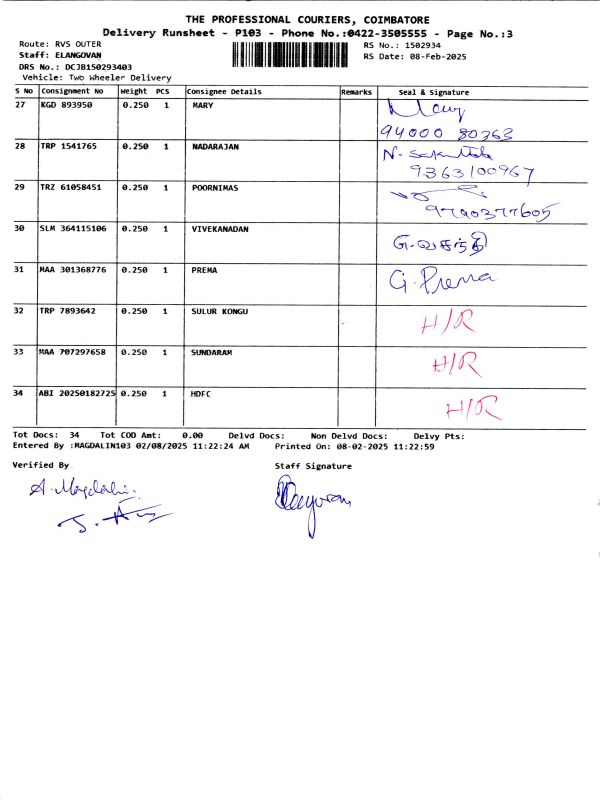 THE PROFESSIONAL COURIERS, COIMBATORE
Delivery Runsheet - P103 - Phone No.:0422-3505555 - Page No.:3
Route: RVS OUTER RS No.: 1502934
Staff: ELANGOVAN RS Date: 08-Feb-2025
DRS No.: DCJB150293403
Vehicle: Two Wheeler Delivery
S No Consignment No Weight PCS Consignee Details Remarks Seal & Signature
27 KGD 893950 0.250 1 MARY Mary
94000 80363
28 TRP 1541765 0.250 1 NADARAJAN N.
9363100967
29 TRZ 61058451 0.250 1 POORNIMAS
9790377605
30 SLM 364115106 0.250 1 VIVEKANADAN G.வசந்தி
31 MAA 301368776 0.250 1 PREMA G. Prema
32 TRP 7893642 0.250 1 SULUR KONGU H/R
33 MAA 707297658 0.250 1 SUNDARAM H/R
34 ABI 20250182725 0.250 1 HDFC H/R
Tot Docs: 34 Tot COD Amt: 0.00 Delvd Docs: Non Delvd Docs: Delvy Pts:
Entered By :MAGDALIN103 02/08/2025 11:22:24 AM Printed On: 08-02-2025 11:22:59
Verified By Staff Signature
A. Magdalin